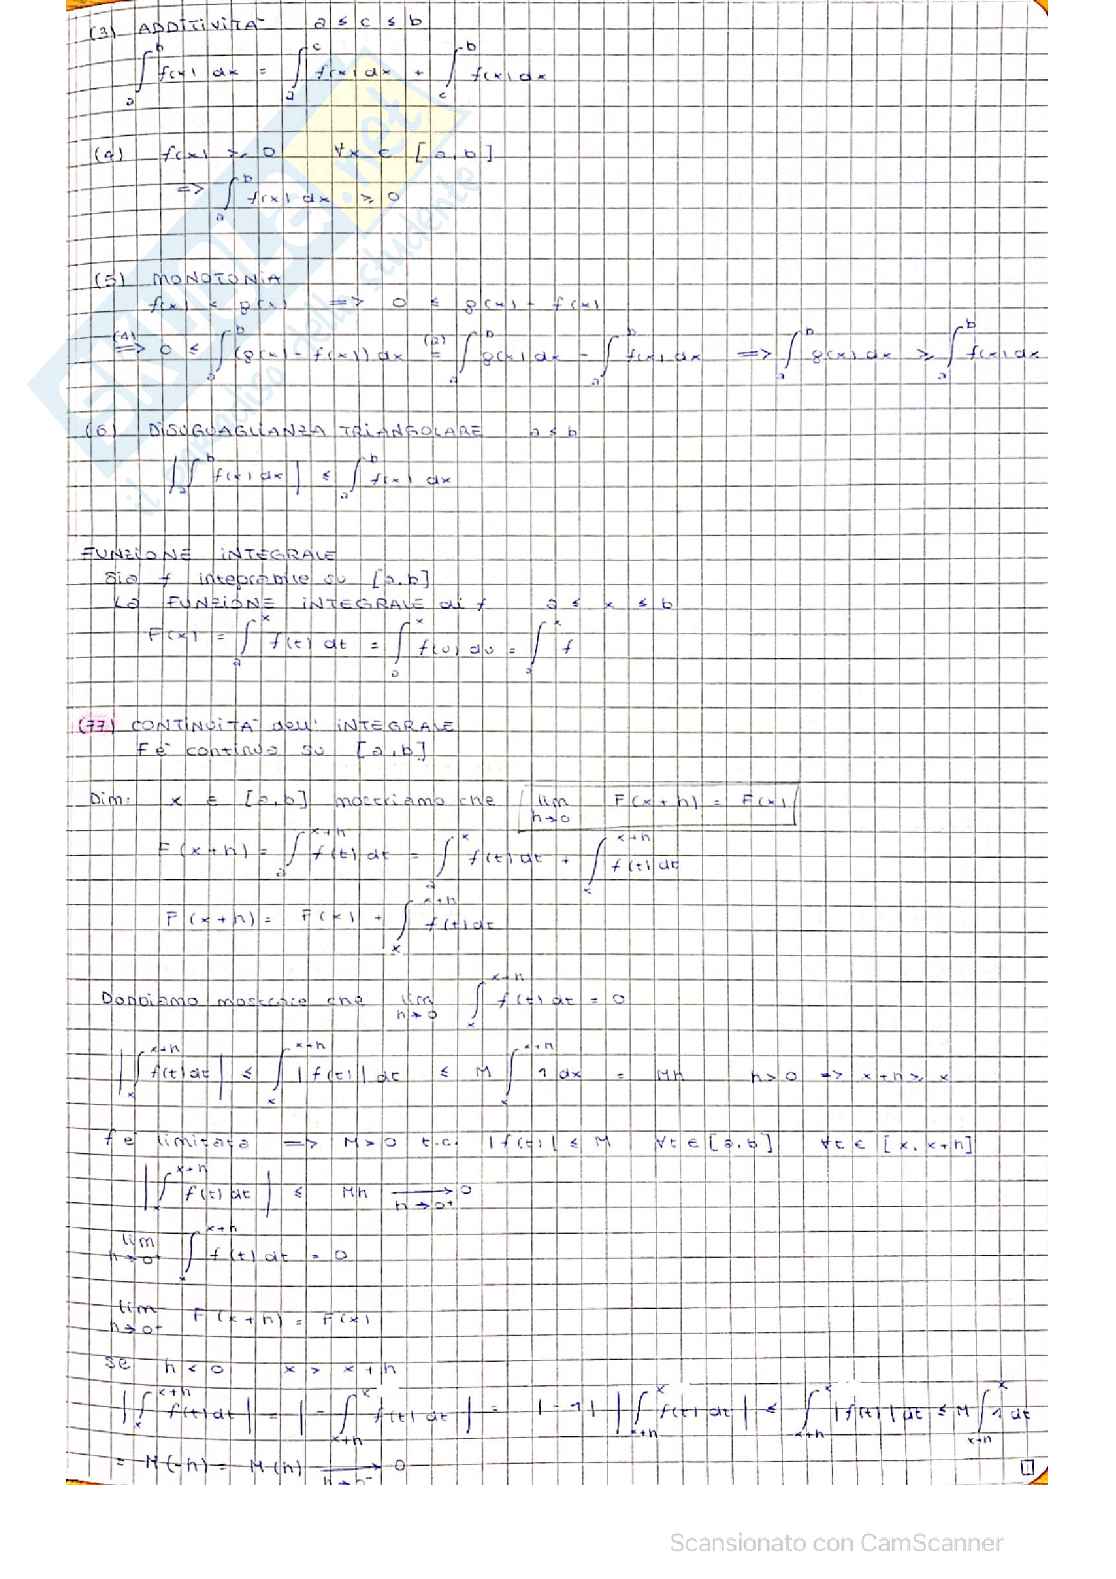 (3) ADDITIVITA' a ≤ c ≤ b
∫_a^b f(x) dx = ∫_a^c f(x) dx + ∫_c^b f(x) dx
(4) f(x) ≥ 0 ∀x ∈ [a,b]
=> ∫_a^b f(x) dx ≥ 0
(5) MONOTONIA
f(x) ≤ g(x) => 0 ≤ g(x) - f(x)
(4) => 0 ≤ ∫_a^b (g(x) - f(x)) dx (2) = ∫_a^b g(x) dx - ∫_a^b f(x) dx => ∫_a^b g(x) dx ≥ ∫_a^b f(x) dx
(6) DISUGUAGLIANZA TRIANGOLARE a ≤ b
|∫_a^b f(x) dx| ≤ ∫_a^b f(x) dx
FUNZIONE INTEGRALE
Sia f integrabile su [a,b]
La FUNZIONE INTEGRALE di f a ≤ x ≤ b
F(x) = ∫_a^x f(t) dt = ∫_a^x f(u) du = ∫_a^x f
(77) CONTINUITA' dell' INTEGRALE
F è continua su [a,b]
Dim: x ∈ [a,b] mostriamo che lim h→0 F(x+h) = F(x)
F(x+h) = ∫_a^{x+h} f(t) dt = ∫_a^x f(t) dt + ∫_x^{x+h} f(t) dt
F(x+h) = F(x) + ∫_x^{x+h} f(t) dt
Dobbiamo mostrare che lim h→0 ∫_x^{x+h} f(t) dt = 0
|∫_x^{x+h} f(t) dt| ≤ ∫_x^{x+h} |f(t)| dt ≤ M ∫_x^{x+h} 1 dx = Mh h>0 => x+h > x
f è limitata => M>0 t.c. |f(t)| ≤ M ∀t ∈ [a,b] ∀t ∈ [x, x+h]
|∫_x^{x+h} f(t) dt| ≤ Mh → h→0+ 0
lim h→0+ ∫_x^{x+h} f(t) dt = 0
lim h→0+ F(x+h) = F(x)
Se h<0 x > x+h
|∫_x^{x+h} f(t) dt| = |-∫_{x+h}^x f(t) dt| = |-1| |∫_{x+h}^x f(t) dt| ≤ ∫_{x+h}^x |f(t)| dt ≤ M ∫_{x+h}^x 1 dt
= M(-h) = M(h) → 0
SKUOLA.net
il paradiso dello studente
Scansionato con CamScanner